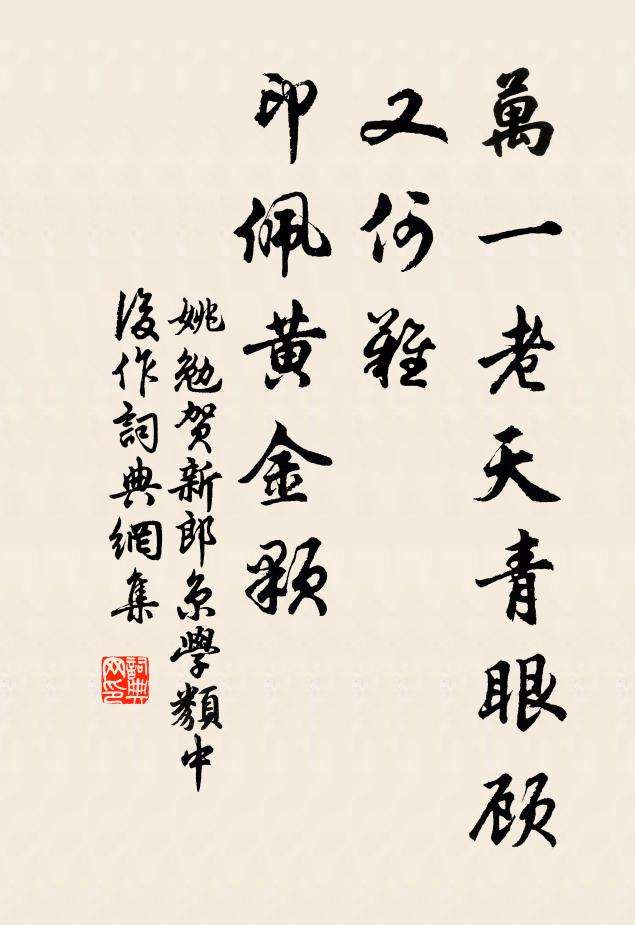 萬一老天青眼顾
又何難
印佩黄金顆
姚勉贺新郎京學類中
後作詞典網集
詞典网印